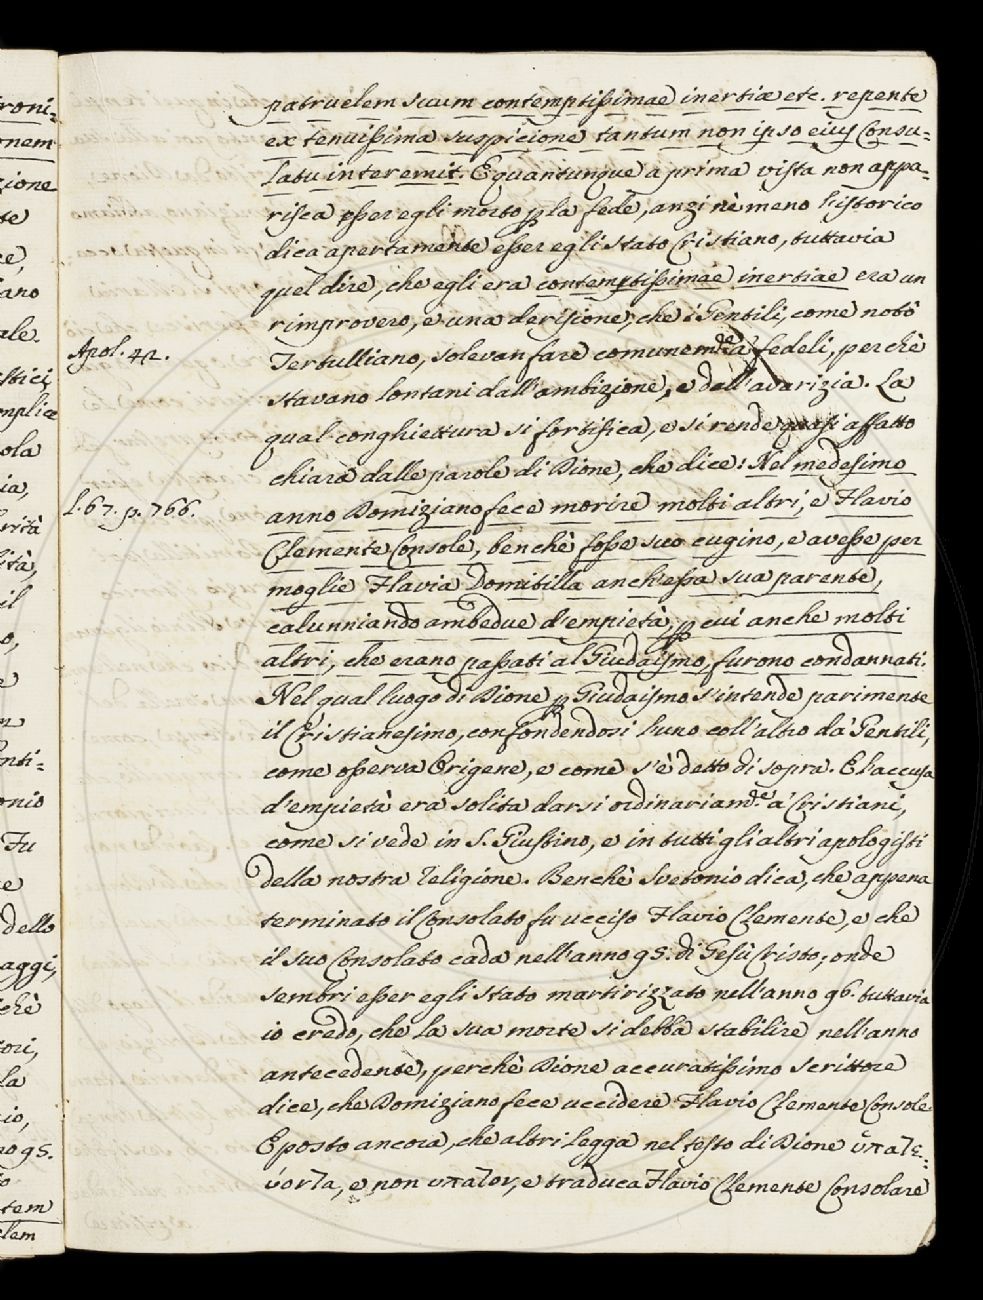 patruelem suum contemptissimae inertiae etc. repente
ex tenuissima suspicione tantum non ipso eius Consu-
latu interemit. E quantunque a prima vista non appa-
risca esser egli morto p la fede, anzi nè meno l'istorico
dica apertamente esser egli stato Cristiano, tuttavia
quel dire, che egli era contemptissimae inertiae era un
rimprovero, e una derisione, che i Gentili, come notò
Apol. 42.
Tertulliano, solevan fare comunem.te a fedeli, perchè
stavano lontani dall'ambizione, e dall'avarizia. La
qual conghiettura si fortifica, e si rende quasi affatto
chiara dalle parole di Dione, che dice: Nel medesimo
l. 67. p. 766.
anno Domiziano fece morire molti altri, e Flavio
Clemente Console, benchè fosse suo cugino, e avesse per
moglie Flavia Domitilla anch'essa sua parente,
calunniando ambedue d'empietà, p cui anche molti
altri, che erano passati al Giudaismo, furono condannati.
Nel qual luogo di Dione p Giudaismo s'intende parimente
il Cristianesimo, confondendosi l'uno coll'altro da' Gentili,
come osserva Origene, e come s'è detto di sopra. E l'accusa
d'empietà era solita darsi ordinariam.te a' Cristiani,
come si vede in S. Giustino, e in tutti gli altri apologisti
della nostra religione. Benchè Svetonio dica, che appena
terminato il Consolato fu ucciso Flavio Clemente, e che
il suo Consolato cada nell'anno 95. di Gesù Cristo, onde
sembri esser egli stato martirizzato nell'anno 96. tuttavia
io credo, che la sua morte si debba stabilire nell'anno
antecedente, perchè Dione accuratissimo scrittore
dice, che Domiziano fece uccidere Flavio Clemente Console.
E posto ancora, che altri legga nel testo di Dione ὑπατε-
ύοντα, e non υπατον, e traduca Flavio Clemente Consolare